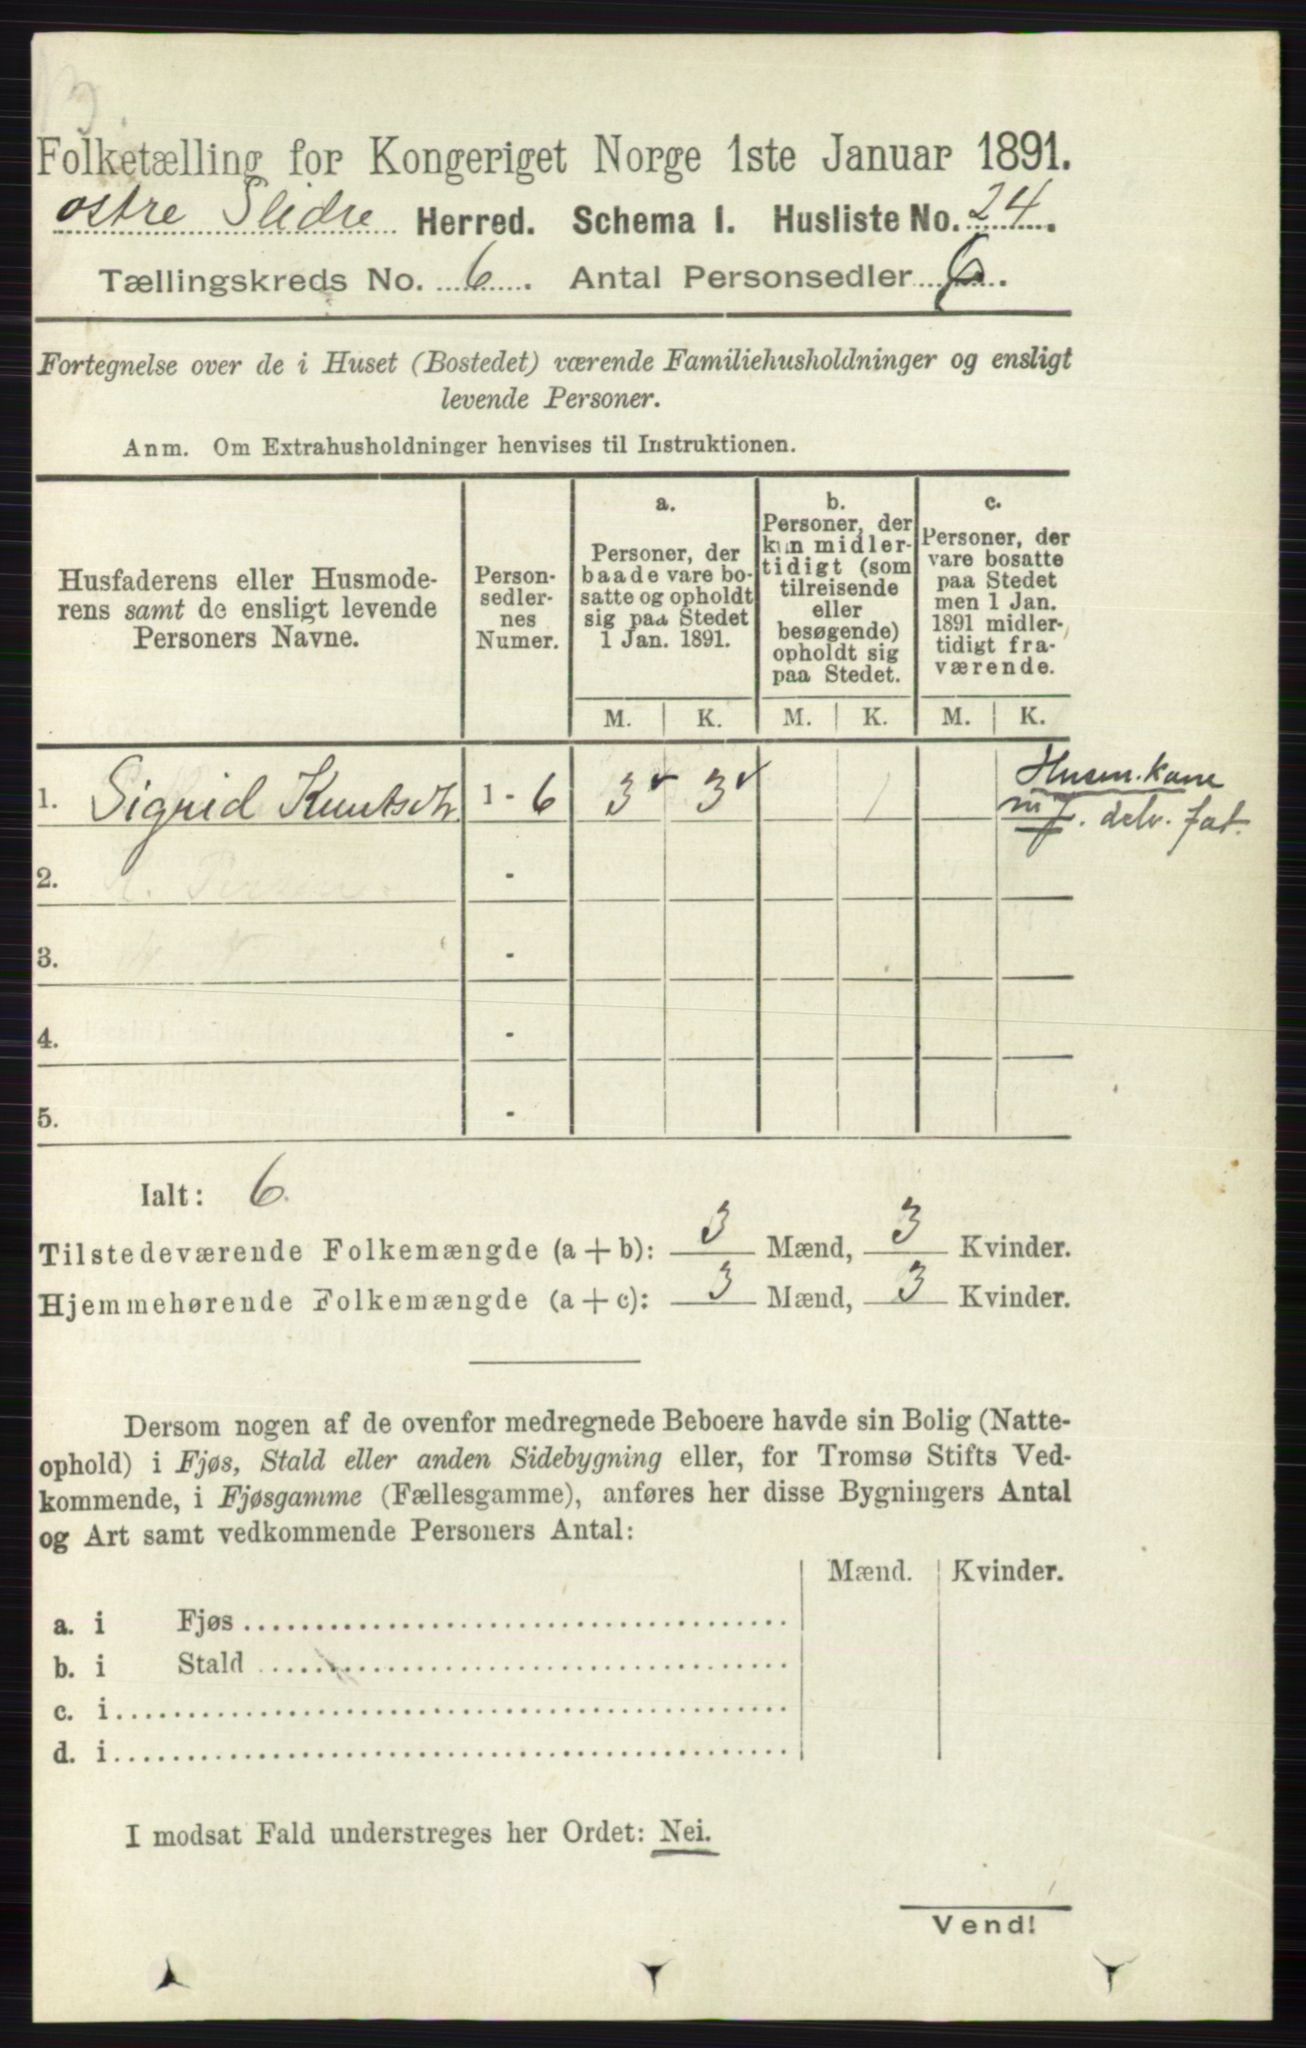 Folketælling for Kongeriget Norge 1ste Januar 1891.
østre Slidre Herred. Schema I. Husliste No. 24.
Tællingskreds No. 6. Antal Personsedler 6.
Fortegnelse over de i Huset (Bostedet) værende Familiehusholdninger og ensligt
levende Personer.
Anm. Om Extrahusholdninger henvises til Instruktionen.
Husfaderens eller Husmode-
rens samt de ensligt levende
Personers Navne.
Person-
sedler-
nes
Numer.
a.
Personer, der
baade vare bo-
satte og opholdt
sig paa Stedet
1 Jan. 1891.
b.
Personer, der
kun midler-
tidigt (som
tilreisende
eller
besøgende)
opholdt sig
paa Stedet.
c.
Personer, der
vare bosatte
paa Stedet
men 1 Jan.
1891 midler-
tidigt fra-
værende.
M. K. M. K. M. K.
1. Sigrid Knutsdt 1 - 6 3 3
Husm.kone
m J. delv. fat.
2. -
3. -
4. -
5. -
Ialt: 6.
Tilstedeværende Folkemængde (a + b): 3 Mænd, 3 Kvinder.
Hjemmehørende Folkemængde (a + c): 3 Mænd, 3 Kvinder.
Dersom nogen af de ovenfor medregnede Beboere havde sin Bolig (Natte-
ophold) i Fjøs, Stald eller anden Sidebygning eller, for Tromsø Stifts Ved-
kommende, i Fjøsgamme (Fællesgamme), anføres her disse Bygningers Antal
og Art samt vedkommende Personers Antal:
Mænd. Kvinder.
a. i Fjøs
b. i Stald
c. i
d. i
I modsat Fald understreges her Ordet: Nei.
Vend!